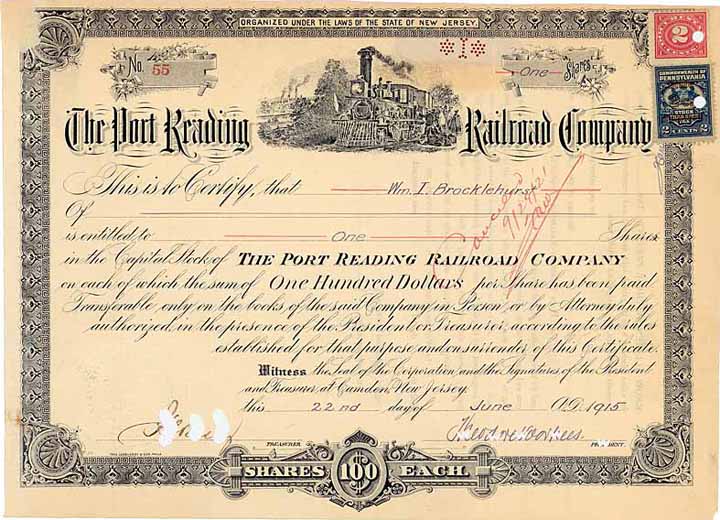 ORGANIZED UNDER THE LAWS OF THE STATE OF NEW JERSEY.
No. 55
One Shares
2
COMMONWEALTH OF PENNSYLVANIA
STOCK TRANSFER TAX
2 CENTS 2
The Port Reading Railroad Company
This is to Certify, that Wm. I. Brocklehurst
Of
is entitled to One Shares
in the Capital Stock of THE PORT READING RAILROAD COMPANY
on each of which the sum of One Hundred Dollars per Share has been paid
Transferable only on the books of the said Company in Person or by Attorney duly
authorized, in the presence of the President or Treasurer, according to the rules
established for that purpose and on surrender of this Certificate.
Cancelled
9/29/21
Witness the Seal of the Corporation and the Signatures of the President
and Treasurer, at Camden, New Jersey.
this 22nd day of June A.D. 1915
Theodore Voorhees
TREASURER. PRESIDENT.
SHARES $100 EACH.